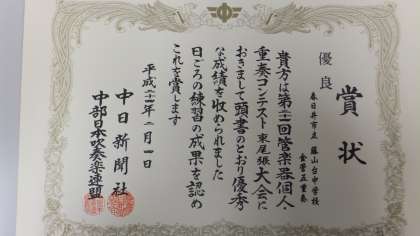 賞状
優良
春日井市立 藤山台中学校
金管五重奏
貴方は第二十二回管楽器個人・
重奏コンテスト東尾張大会に
おきまして頭書のとおり優秀
な成績を収められました
日ごろの練習の成果を認め
これを賞します
平成二十四年二月一日
中日新聞社
中部日本吹奏楽連盟